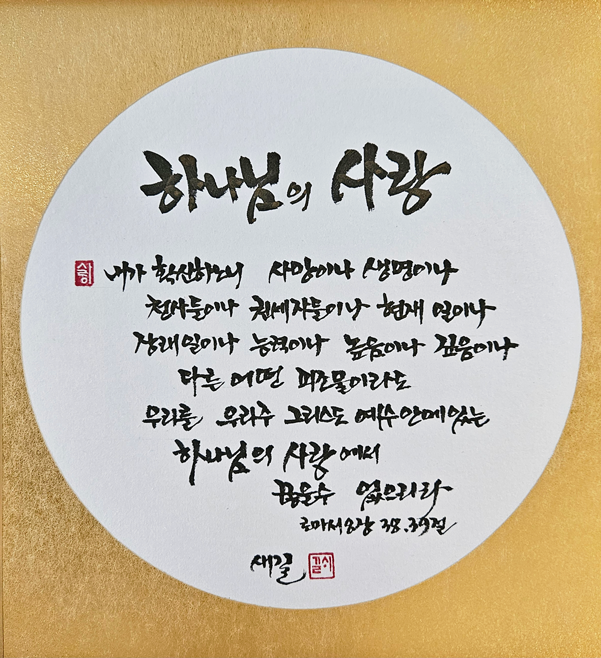 하나님의 사랑
사랑 내가 확신하노니 사망이나 생명이나
천사들이나 권세자들이나 현재 일이나
장래일이나 능력이나 높음이나 깊음이나
다른 어떤 피조물이라도
우리를 우리주 그리스도 예수 안에 있는
하나님의 사랑에서
끊을 수 없으리라
로마서 8장 38.39절
새길